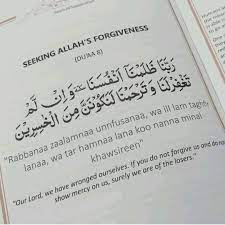 SEEKING ALLAH'S FORGIVENESS
(DU'AA 8)
رَبَّنَا ظَلَمْنَا أَنْفُسَنَا وَإِنْ لَّمْ
تَغْفِرْ لَنَا وَتَرْحَمْنَا لَنَكُوْنَنَّ مِنَ الْخٰسِرِيْنَ
"Rabbanaa zaalamnaa unnfusanaa, wa ill lam taghfir
lanaa, wa tar hamnaa lana koo nanna minal
khawsireen."
"Our Lord, we have wronged ourselves. If you do not forgive us and do not
show mercy on us, surely we are of the losers."